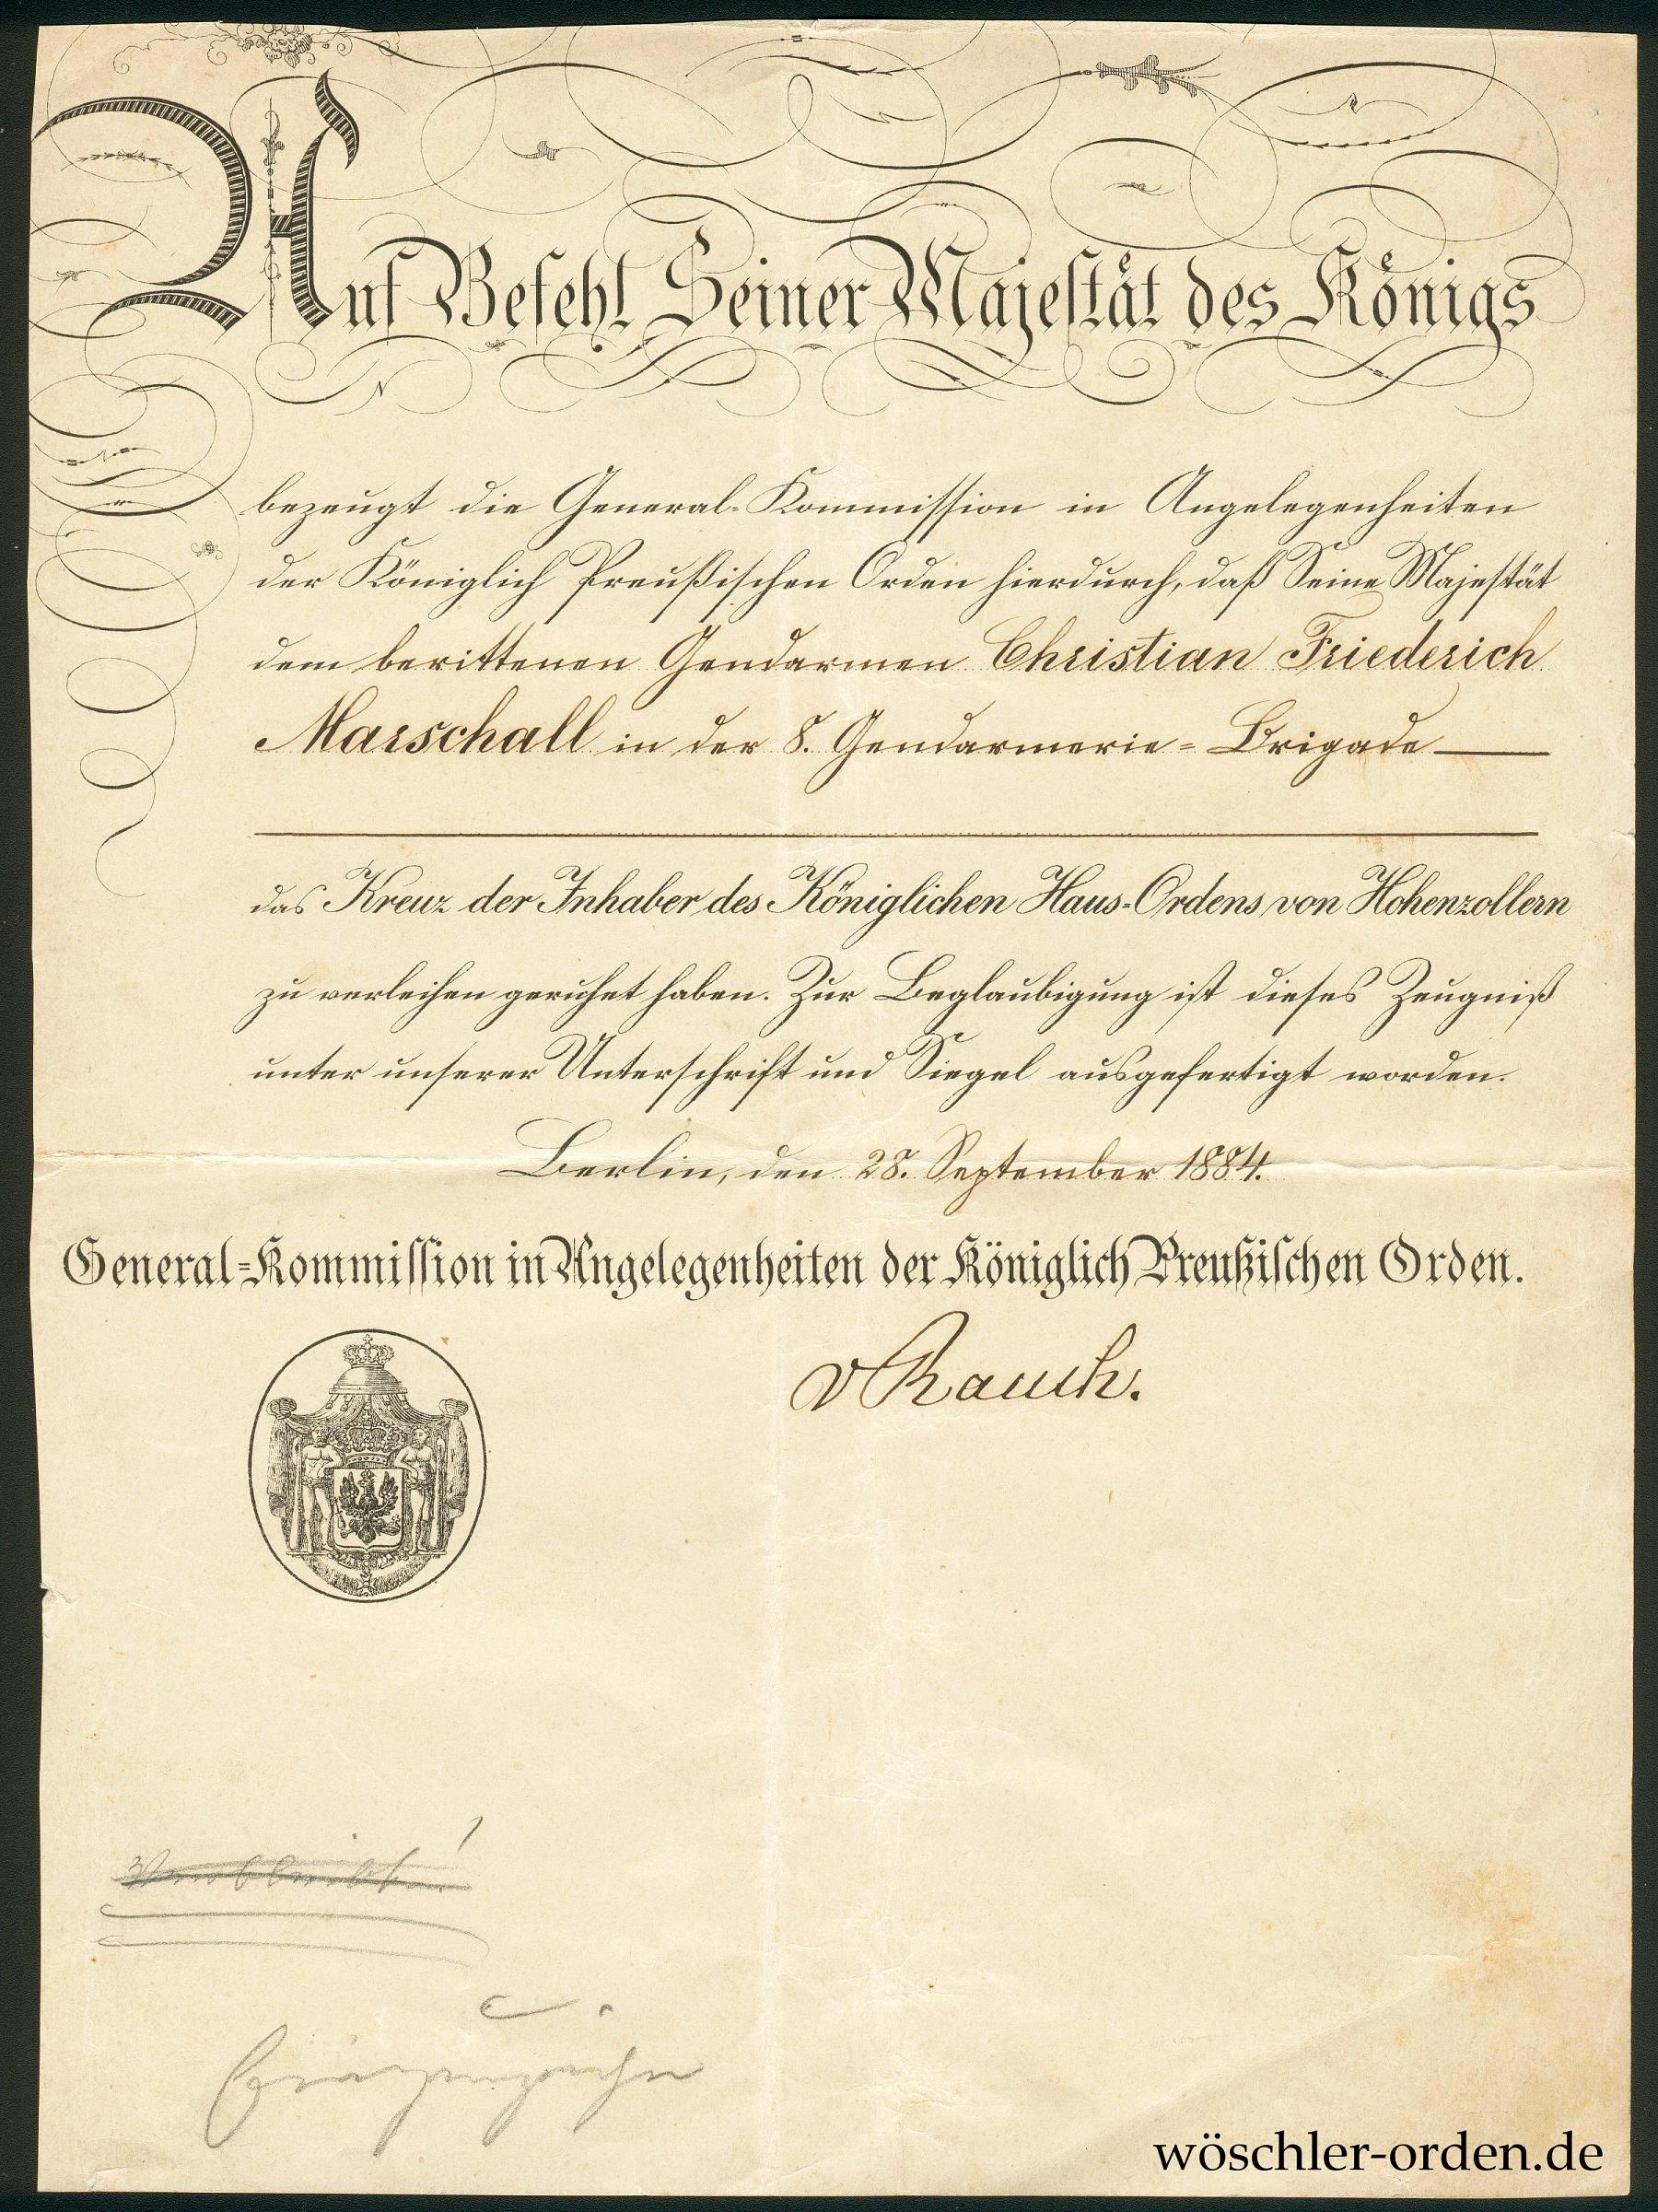 Auf Befehl Seiner Majestät des Königs
bezeugt die General-Kommission in Angelegenheiten
der Königlich Preußischen Orden hierdurch, daß Seine Majestät
dem berittenen Gendarmen Christian Friederich
Marschall in der 8. Gendarmerie-Brigade
das Kreuz der Inhaber des Königlichen Haus-Ordens von Hohenzollern
zu verleihen geruhet haben. Zur Beglaubigung ist dieses Zeugniß
unter unserer Unterschrift und Siegel ausgefertigt worden.
Berlin, den 28. September 1884.
General-Kommission in Angelegenheiten der Königlich Preußischen Orden.
v Rauch.
wöschler-orden.de